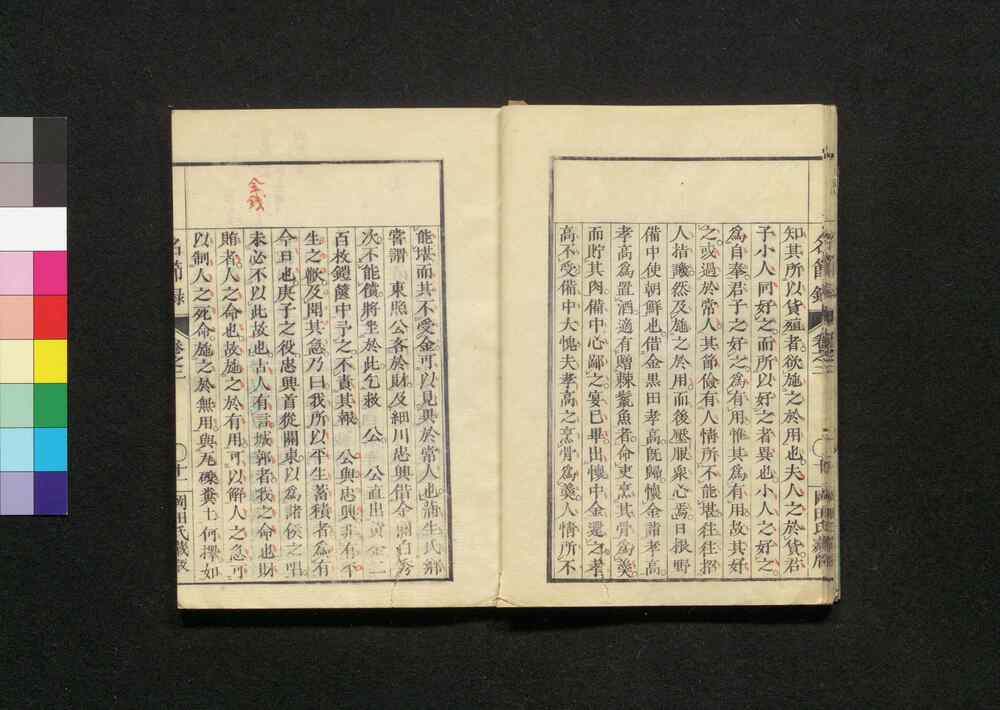 知其所以貨殖者欲施之於用也夫人之於貨君
子小人同好之而所以好之者異也小人之好之
為自奉君子之好之為有用惟其為有用故其好
之或過於常人其節儉有人情所不能堪往往招
人拮譏然及施之於用而後壓服衆心焉日根野
備中使朝鮮也借金黒田孝高既歸懷金詣孝高
孝高為置酒適有贈棘鬣魚者命吏烹其骨為羮
而貯其肉備中心鄙之宴已畢出懷中金還之孝
高不受備中大愧夫孝高之烹骨為羮人情所不
能堪而其不受金可以見異於常人也蒲生氏鄉
嘗謂 東照公吝於財及細川忠興借金關白秀
次不能償將坐於此乞救 公 公直出黃金二
百枚鎧篋中予之不責其報 公與忠興非有平
生之歡及聞其急乃曰我所以平生蓄積者為有
今日也庚子之役忠興首從關東以為諸侯之唱
未必不以此故也古人有言城郭者我之命也財
賄者人之命也故施之於有用可以解人之急可
以制人之死命施之於無用與瓦礫糞土何擇如
金錢
名節錄
卷之二
十一
岡田氏藏
名節錄
卷之二